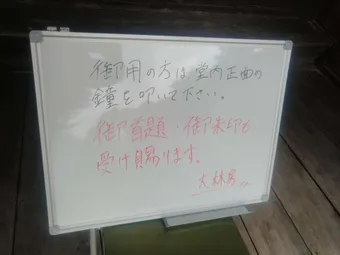 御用の方は堂内正面の
鐘を叩いて下さい。
御首題・御朱印を
受け賜ります。
大林房